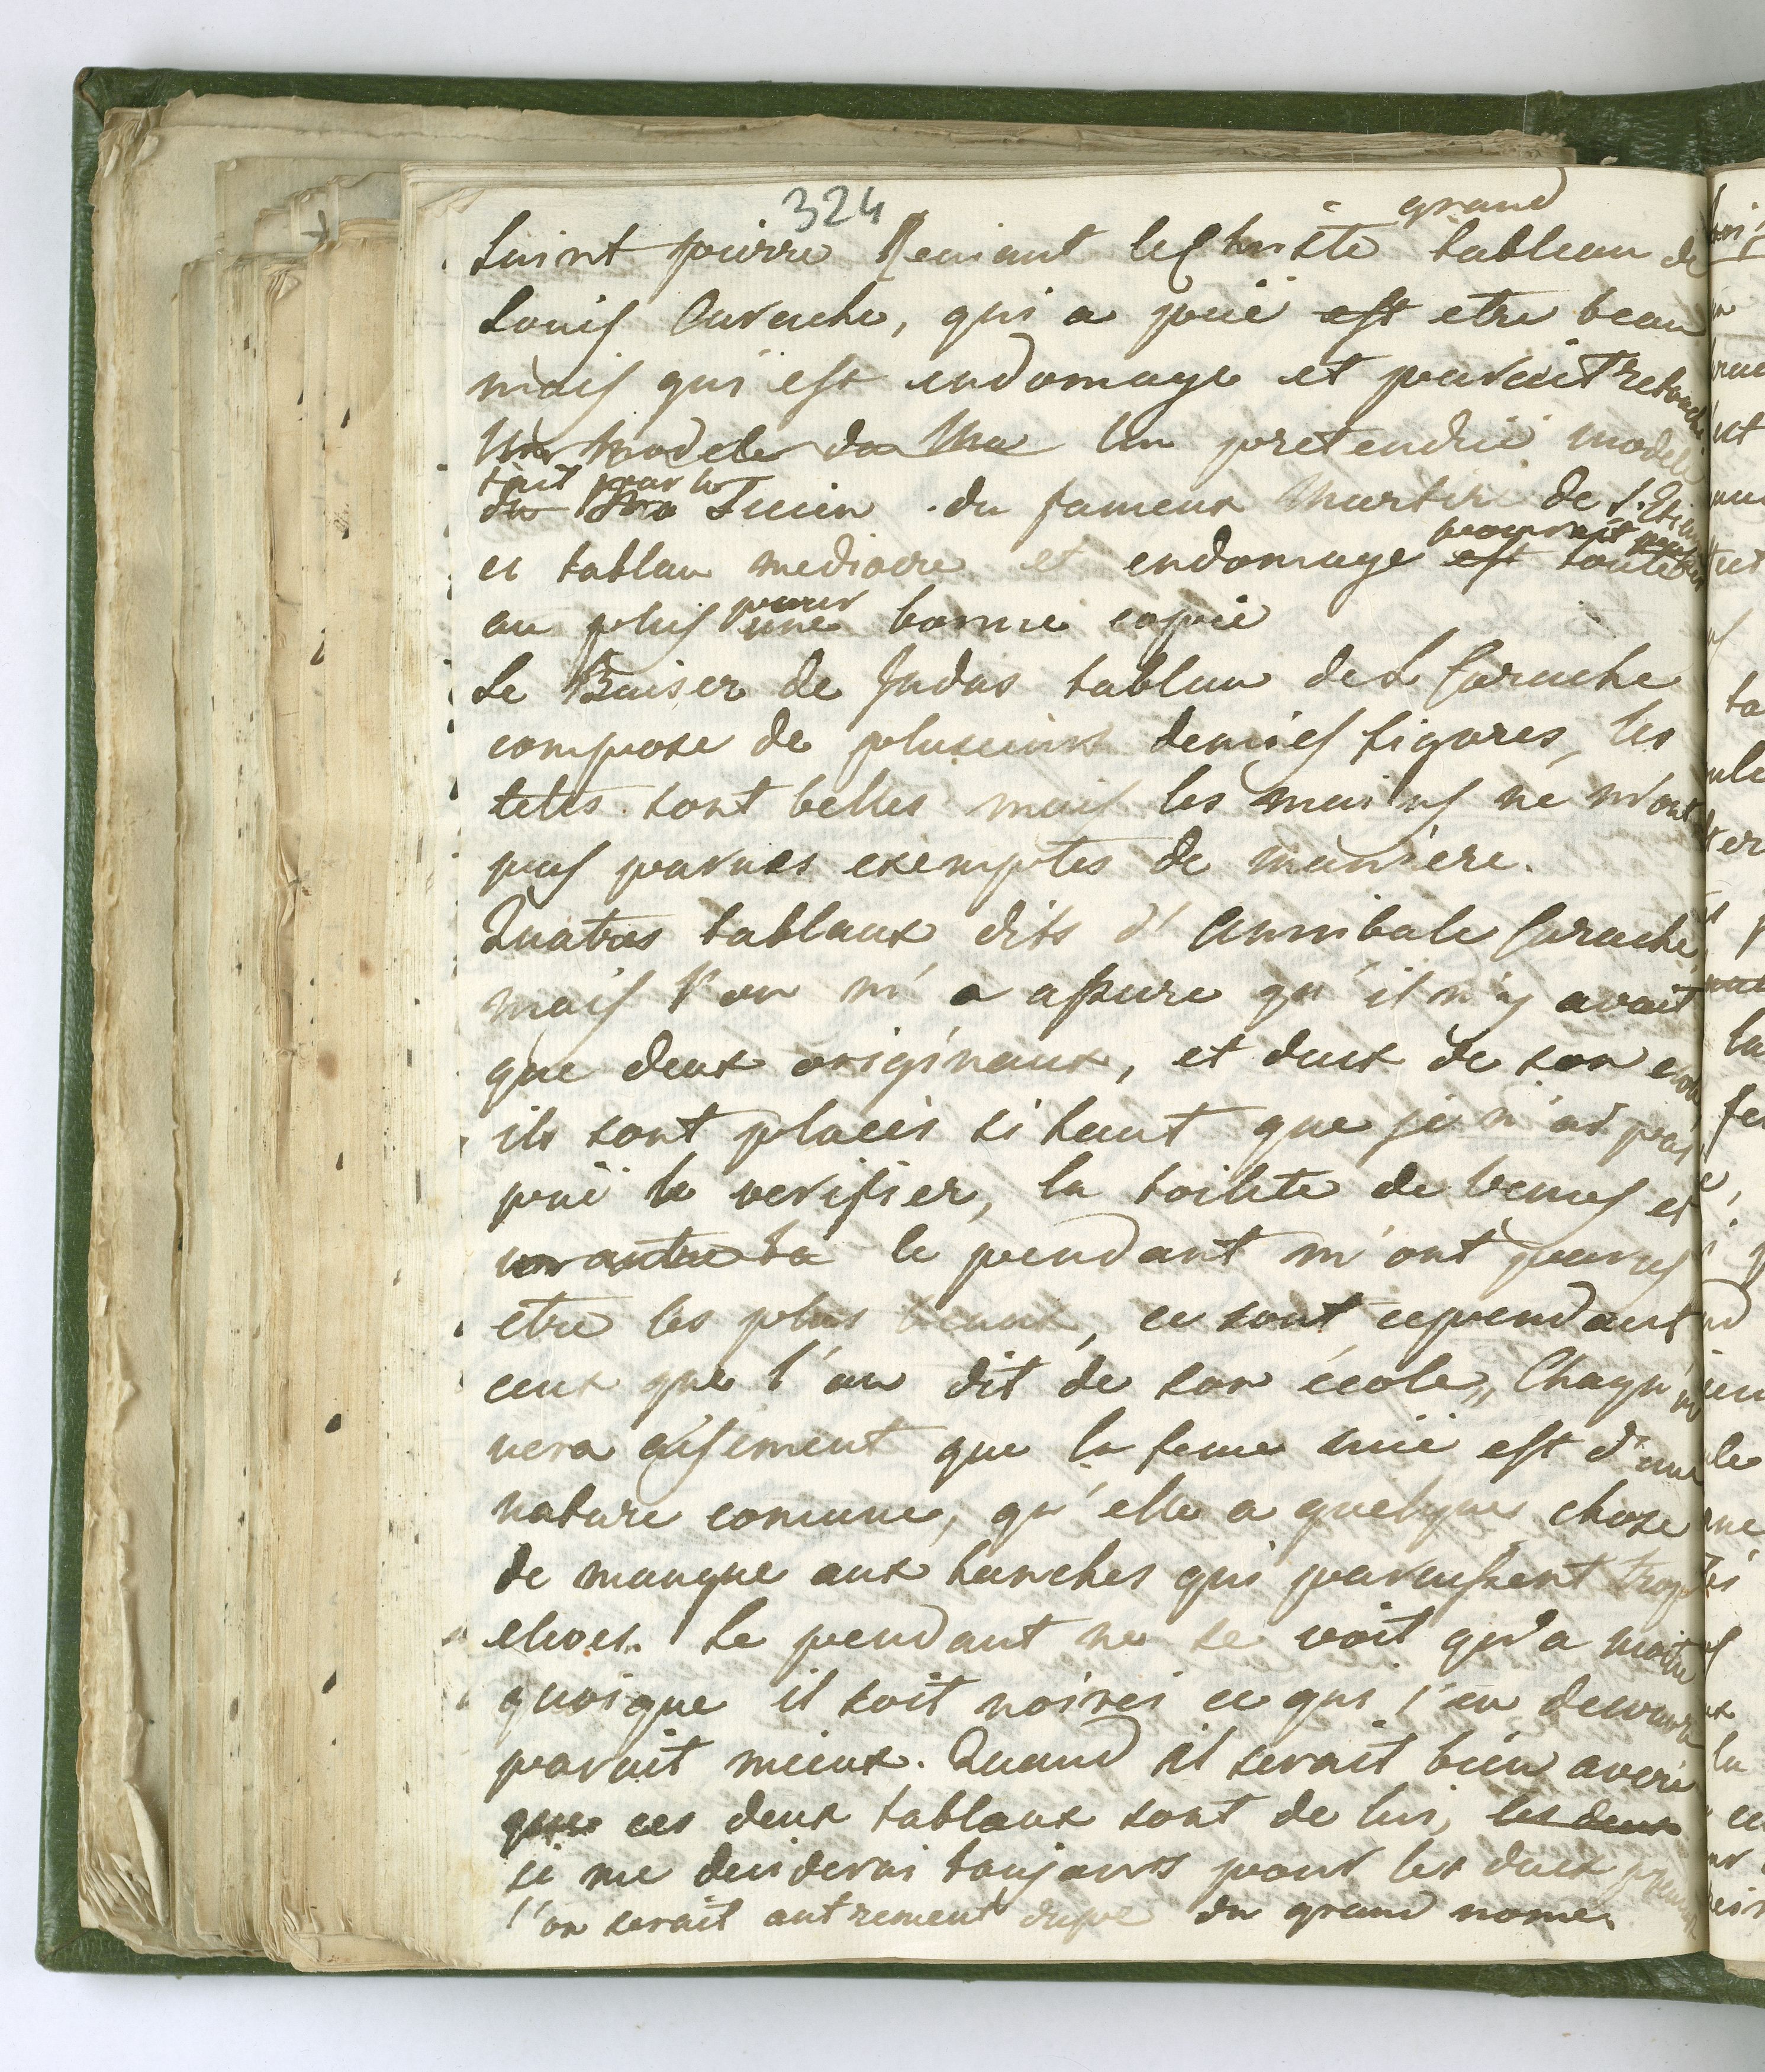 324
grand
Saint pierre Reniant le Christe tableau de
Louis Carache, qui a puë est etre beau
mais qui est endomage et parait retouché
Un modele du Ma Un pretendüe modele
fait pour le
du Tiecien du fameux Martir de S.
pourrait passer
ce tablau mediocre et endomage est toute
pour
au plus une bonne copie
Le Baiser de Judas tablau de L Carache
compose de plusieurs demies figures, les
tetes sont belles mais les mains ne m'ont
pas parues exemptes de maniere.
Quatres tablaux dits d'Annibale Carache,
mais l'on m'a assure qu'il n'y avait
que deux originaux, et deux de son ecole
ils sont placés si haut que je n'ai pas
puë le verifier, la toilete de Venus et
un autre le pendant m'ont parus
etre les plus beaux, ce sont cependant
ceux que l'on dit de son école,, Chaqu'un
vera aisement que la feme nüe est d'une
nature comune, qu'elle a quelques chose
de manque aux hanches qui paraissent trop
elevées. Le pendant ne se voit qu'a moitie
quoique il soit noirci ce qui l'en decouvre
parait mieux. Quand il serait bien averé
que ces deux tablaux sont de lui, les deux
je me deciderai toujours pour les deux premiers
l'on serait autrement dupe du grand nome.